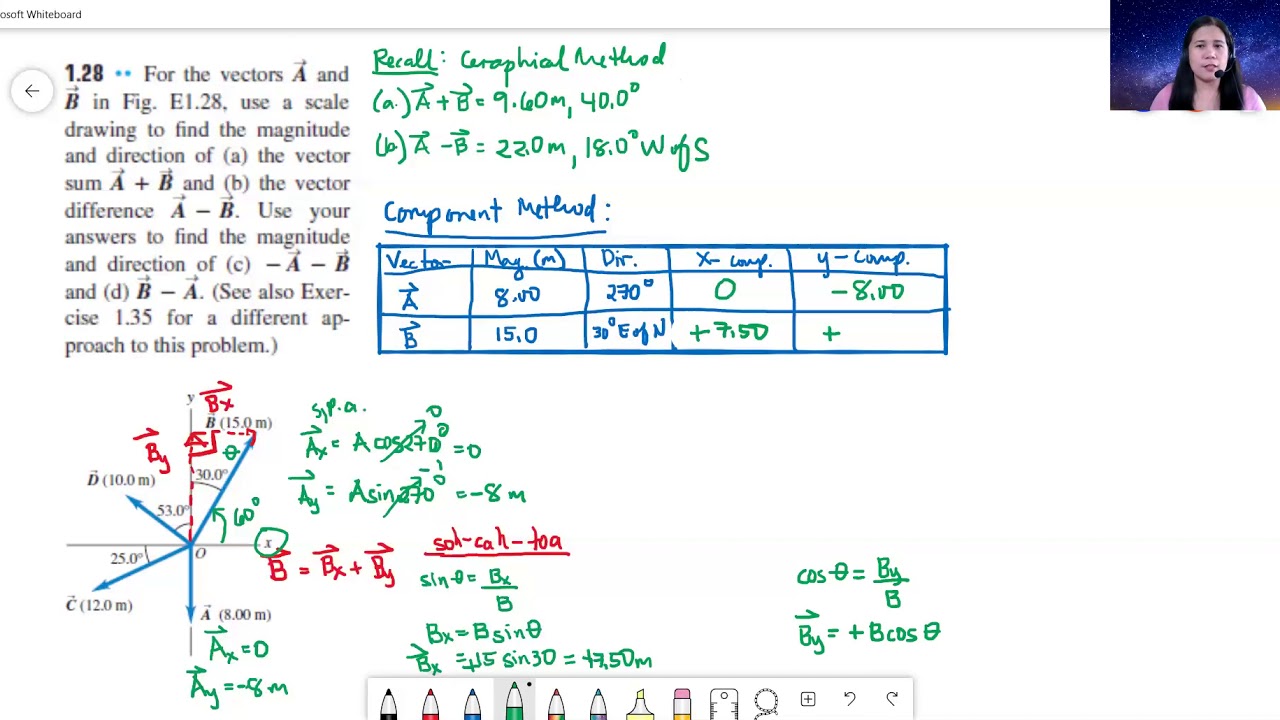 osoft Whiteboard
1.28 •• For the vectors A⃗ and
B⃗ in Fig. E1.28, use a scale
drawing to find the magnitude
and direction of (a) the vector
sum A⃗ + B⃗ and (b) the vector
difference A⃗ − B⃗. Use your
answers to find the magnitude
and direction of (c) −A⃗ − B⃗
and (d) B⃗ − A⃗. (See also Exer-
cise 1.35 for a different ap-
proach to this problem.)
Recall: Graphical Method
(a.) A⃗ + B⃗ = 9.60m, 40.0°
(b.) A⃗ − B⃗ = 22.0m, 18.0° W of S
Component Method:
Vector Mag. (m) Dir. X- comp. y- comp.
A⃗ 8.00 270° 0 −8.00
B⃗ 15.0 30° E of N +7.50 +
y
B⃗x
B⃗ (15.0 m)
B⃗y
θ
30.0°
D⃗ (10.0 m)
53.0°
60°
x
O
25.0°
C⃗ (12.0 m)
A⃗ (8.00 m)
A⃗x = 0
A⃗y = −8 m
s,p.a.
A⃗x = A cos270° = 0
0
A⃗y = A sin270° = −8 m
−1
B⃗ = B⃗x + B⃗y
soh-cah-toa
sinθ = Bx/B
Bx = B sinθ
B⃗x = +15 sin30 = +7.50m
cosθ = By/B
B⃗y = + B cos θ